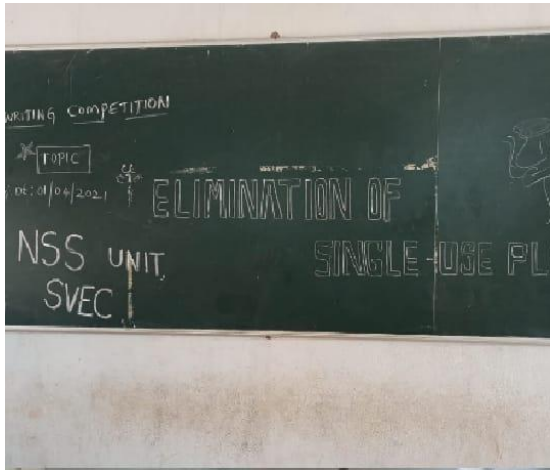 WRITING COMPETITION
TOPIC
Dt: 01/04/2021
ELIMINATION OF
SINGLE-USE PL
NSS UNIT,
SVEC